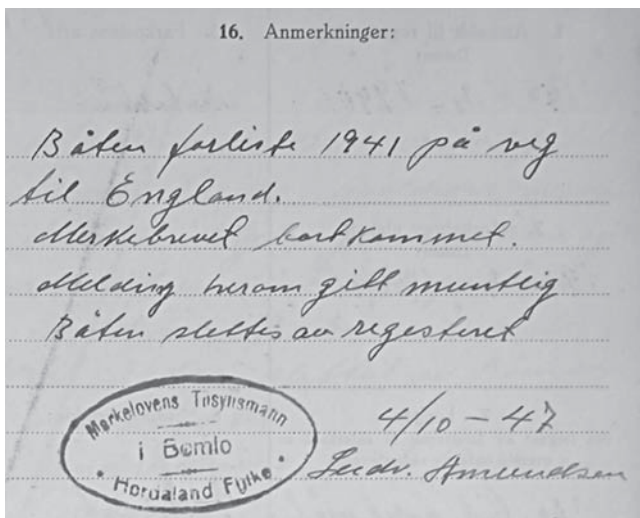 16. Anmerkninger:
Båten forliste 1941 på veg
til England.
Merkebrevet bortkommet.
Melding herom gitt muntlig
Båten slettes av regesteret
4/10 - 47
Merkelovens Tilsynsmann
i Bømlo
Hordaland Fylke
Ludv. Amundsen